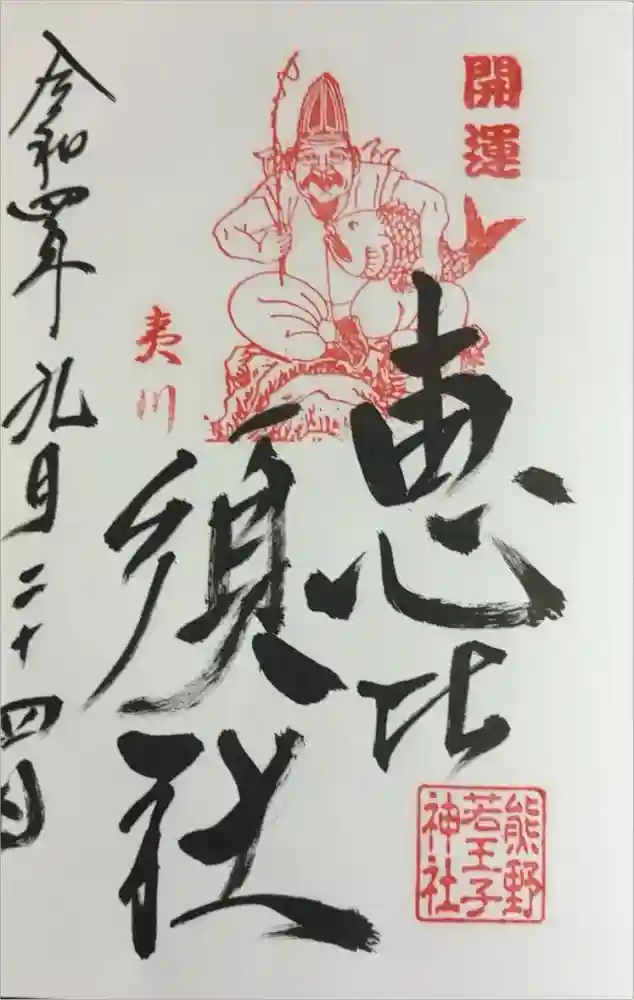 開運
恵比
須社
夷川
令和四年九月二十四日
熊野
若王子
神社